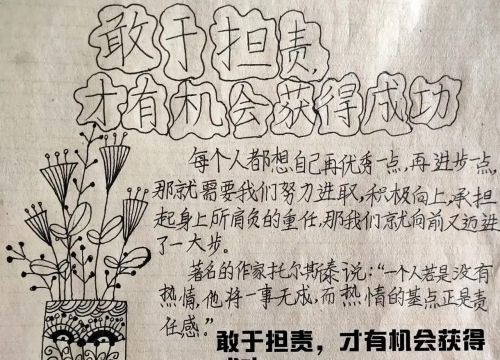 敢于担责,
才有机会获得成功
每个人都想自己再优秀一点,再进步一点,
那就需要我们努力进取,积极向上,承担
起身上所肩负的重任,那我们就向前又迈进
了一大步。
著名的作家托尔斯泰说:“一个人若是没有
热情,他将一事无成,而热情的基点正是责
任感。”
敢于担责，才有机会获得